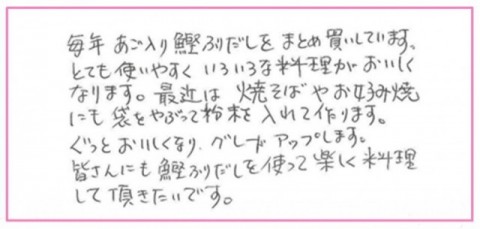 毎年 あご入り鰹ふりだしを まとめ買いしています。
とても使いやすく いろいろな料理が おいしく
なります。最近は 焼そばや お好み焼
にも 袋をやぶって粉末を 入れて作ります。
ぐっと おいしくなり、グレードアップします。
皆さんにも 鰹ふりだしを使って 楽しく 料理
して 頂きたいです。